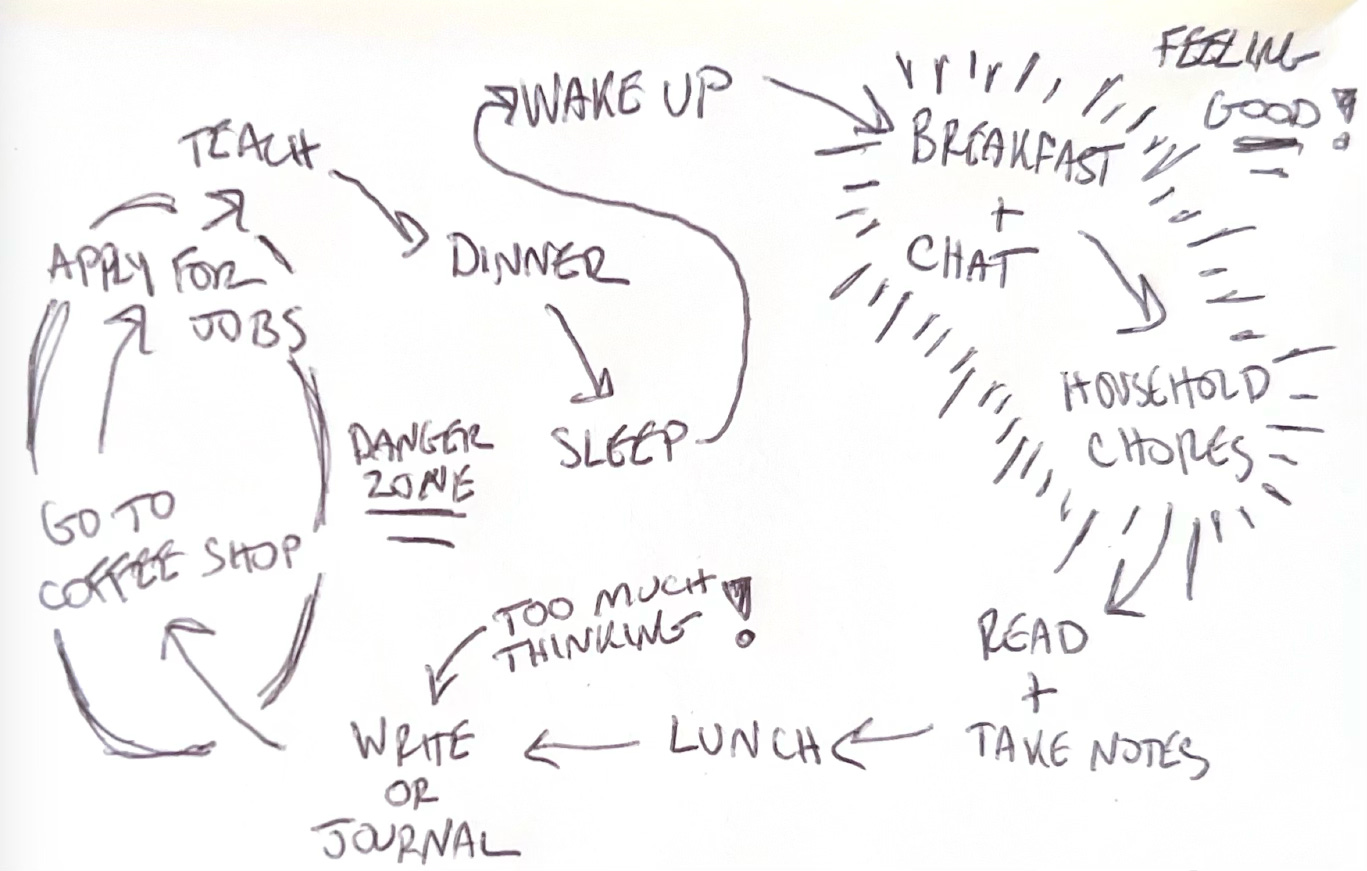 FEELING
GOOD!
WAKE UP
BREAKFAST
+
CHAT
HOUSEHOLD
CHORES
READ
+
TAKE NOTES
LUNCH
TOO MUCH
THINKING!
WRITE
OR
JOURNAL
GO TO
COFFEE SHOP
APPLY FOR
JOBS
DANGER
ZONE
TEACH
DINNER
SLEEP